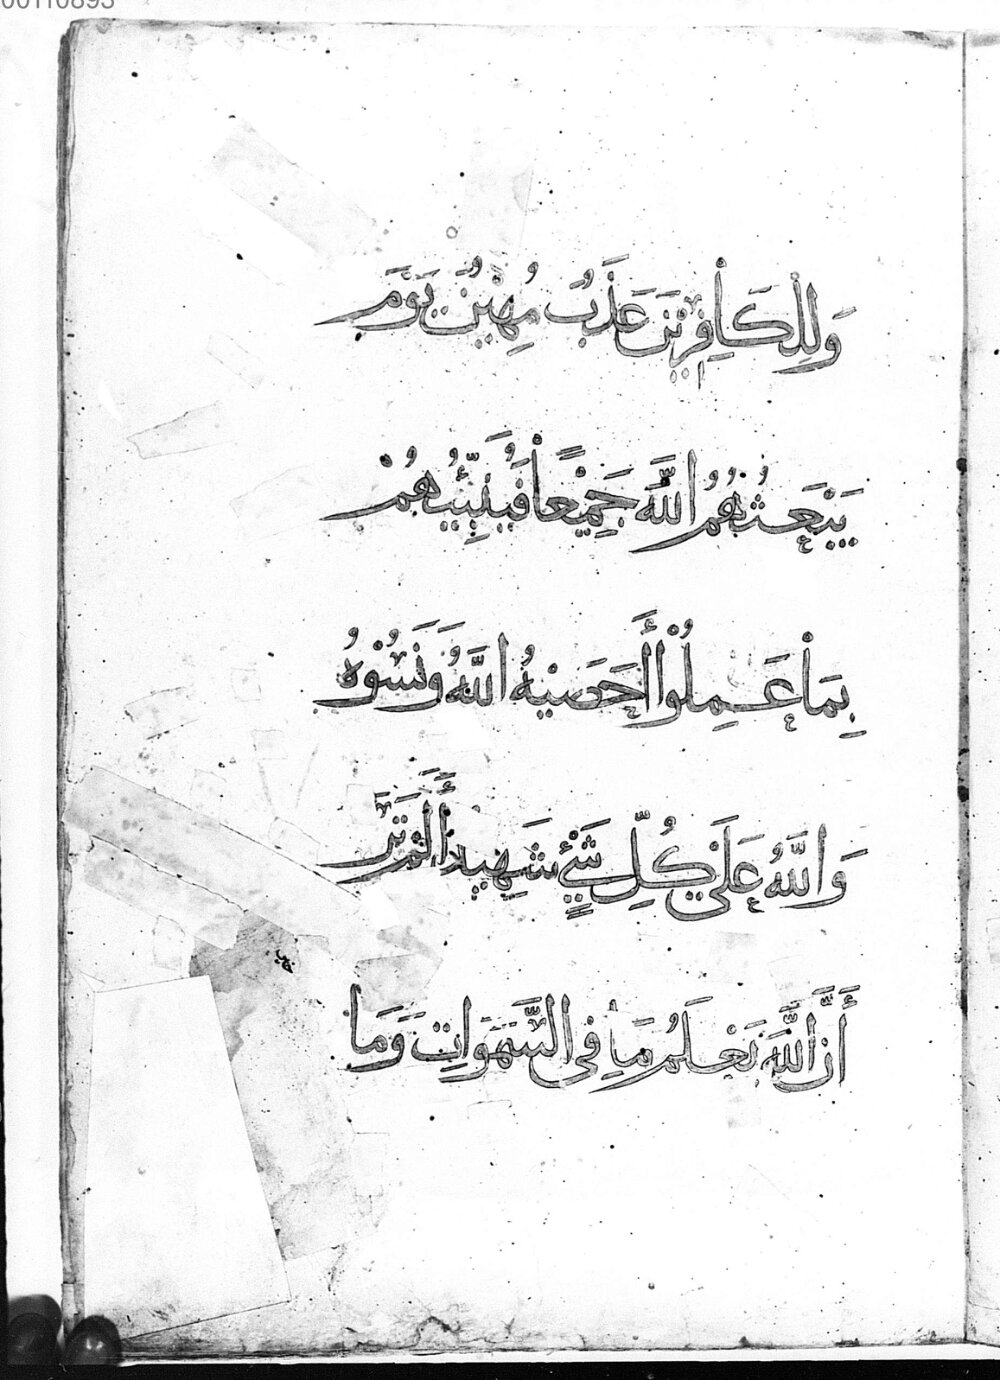 00110893
وَلِلْكَافِرِيْنَ عَذَبٌ مُهِيْنٌ يَوْمَ
يَبْعَثُهُمُ اللَّهُ جَمِيْعًا فَيُنَبِّئُهُمْ
بِمَا عَمِلُوْا أَحْصَيهُ اللَّهُ وَنَسُوْهُ
وَاللَّهُ عَلَىْ كُلِّ شَيْءٍ شَهِيدٌ أَلَمْ تَرَ
أَنَّ اللَّهَ يَعْلَمُ مَا فِى السَّمَوَاتِ وَمَا